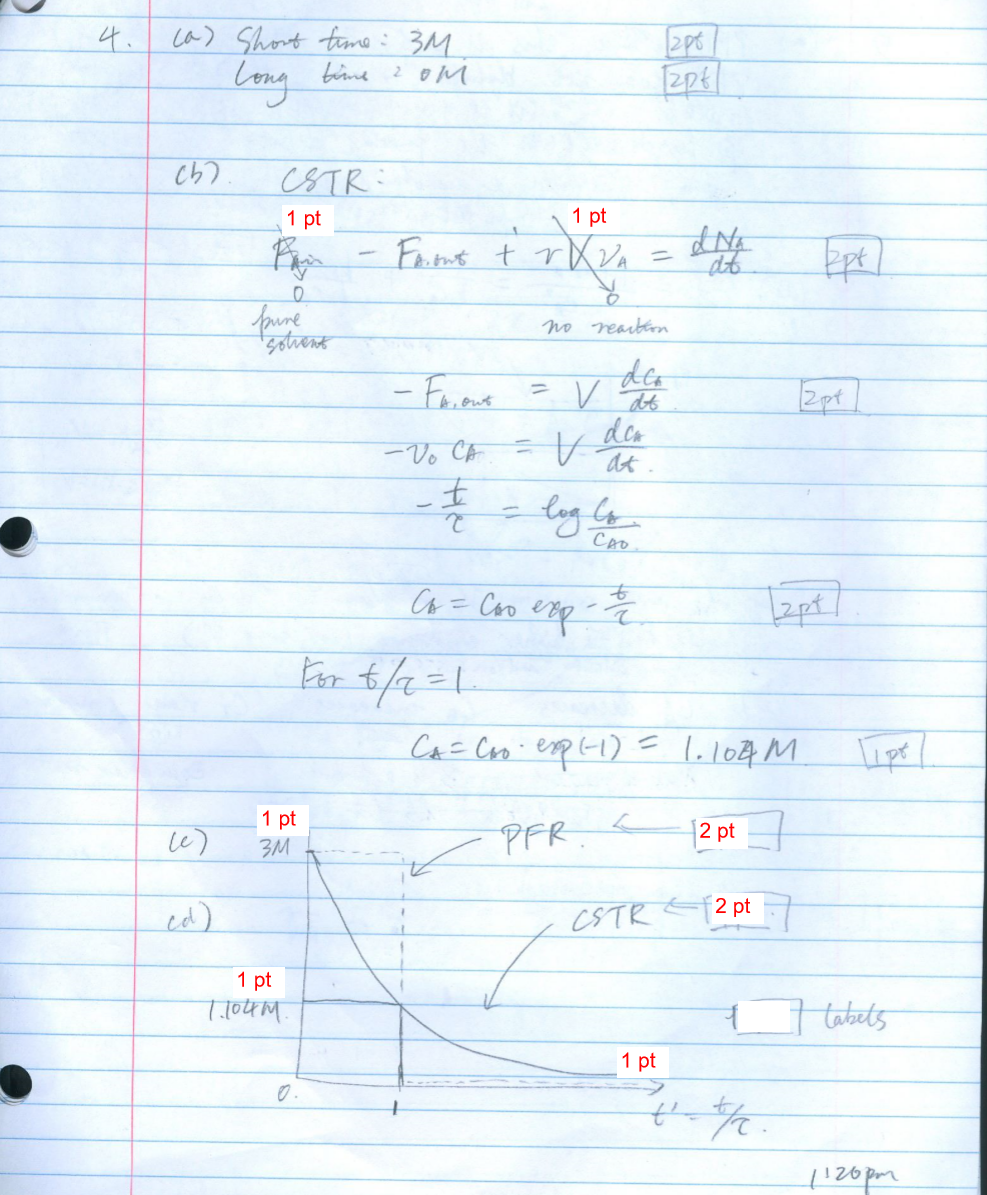 4. (a) Short time: 3M 2pt
Long time: 0M 2pt
(b). CSTR:
1 pt 1 pt
F_A,in - F_A,out + rVν_A = dN_A/dt 2pt
0 0
pure no reaction
solvent
-F_A,out = V dC_A/dt 2pt
-v₀ C_A = V dC_A/dt.
-t/τ = log C_A/C_A0.
C_A = C_A0 exp -t/τ. 2pt
For t/τ = 1.
C_A = C_A0 · exp(-1) = 1.104M 1pt
1 pt
(c) 3M PFR. 2 pt
(d) CSTR 2 pt
1 pt
1.104M. labels
1 pt
0. 1 t' = t/τ.
1:20pm